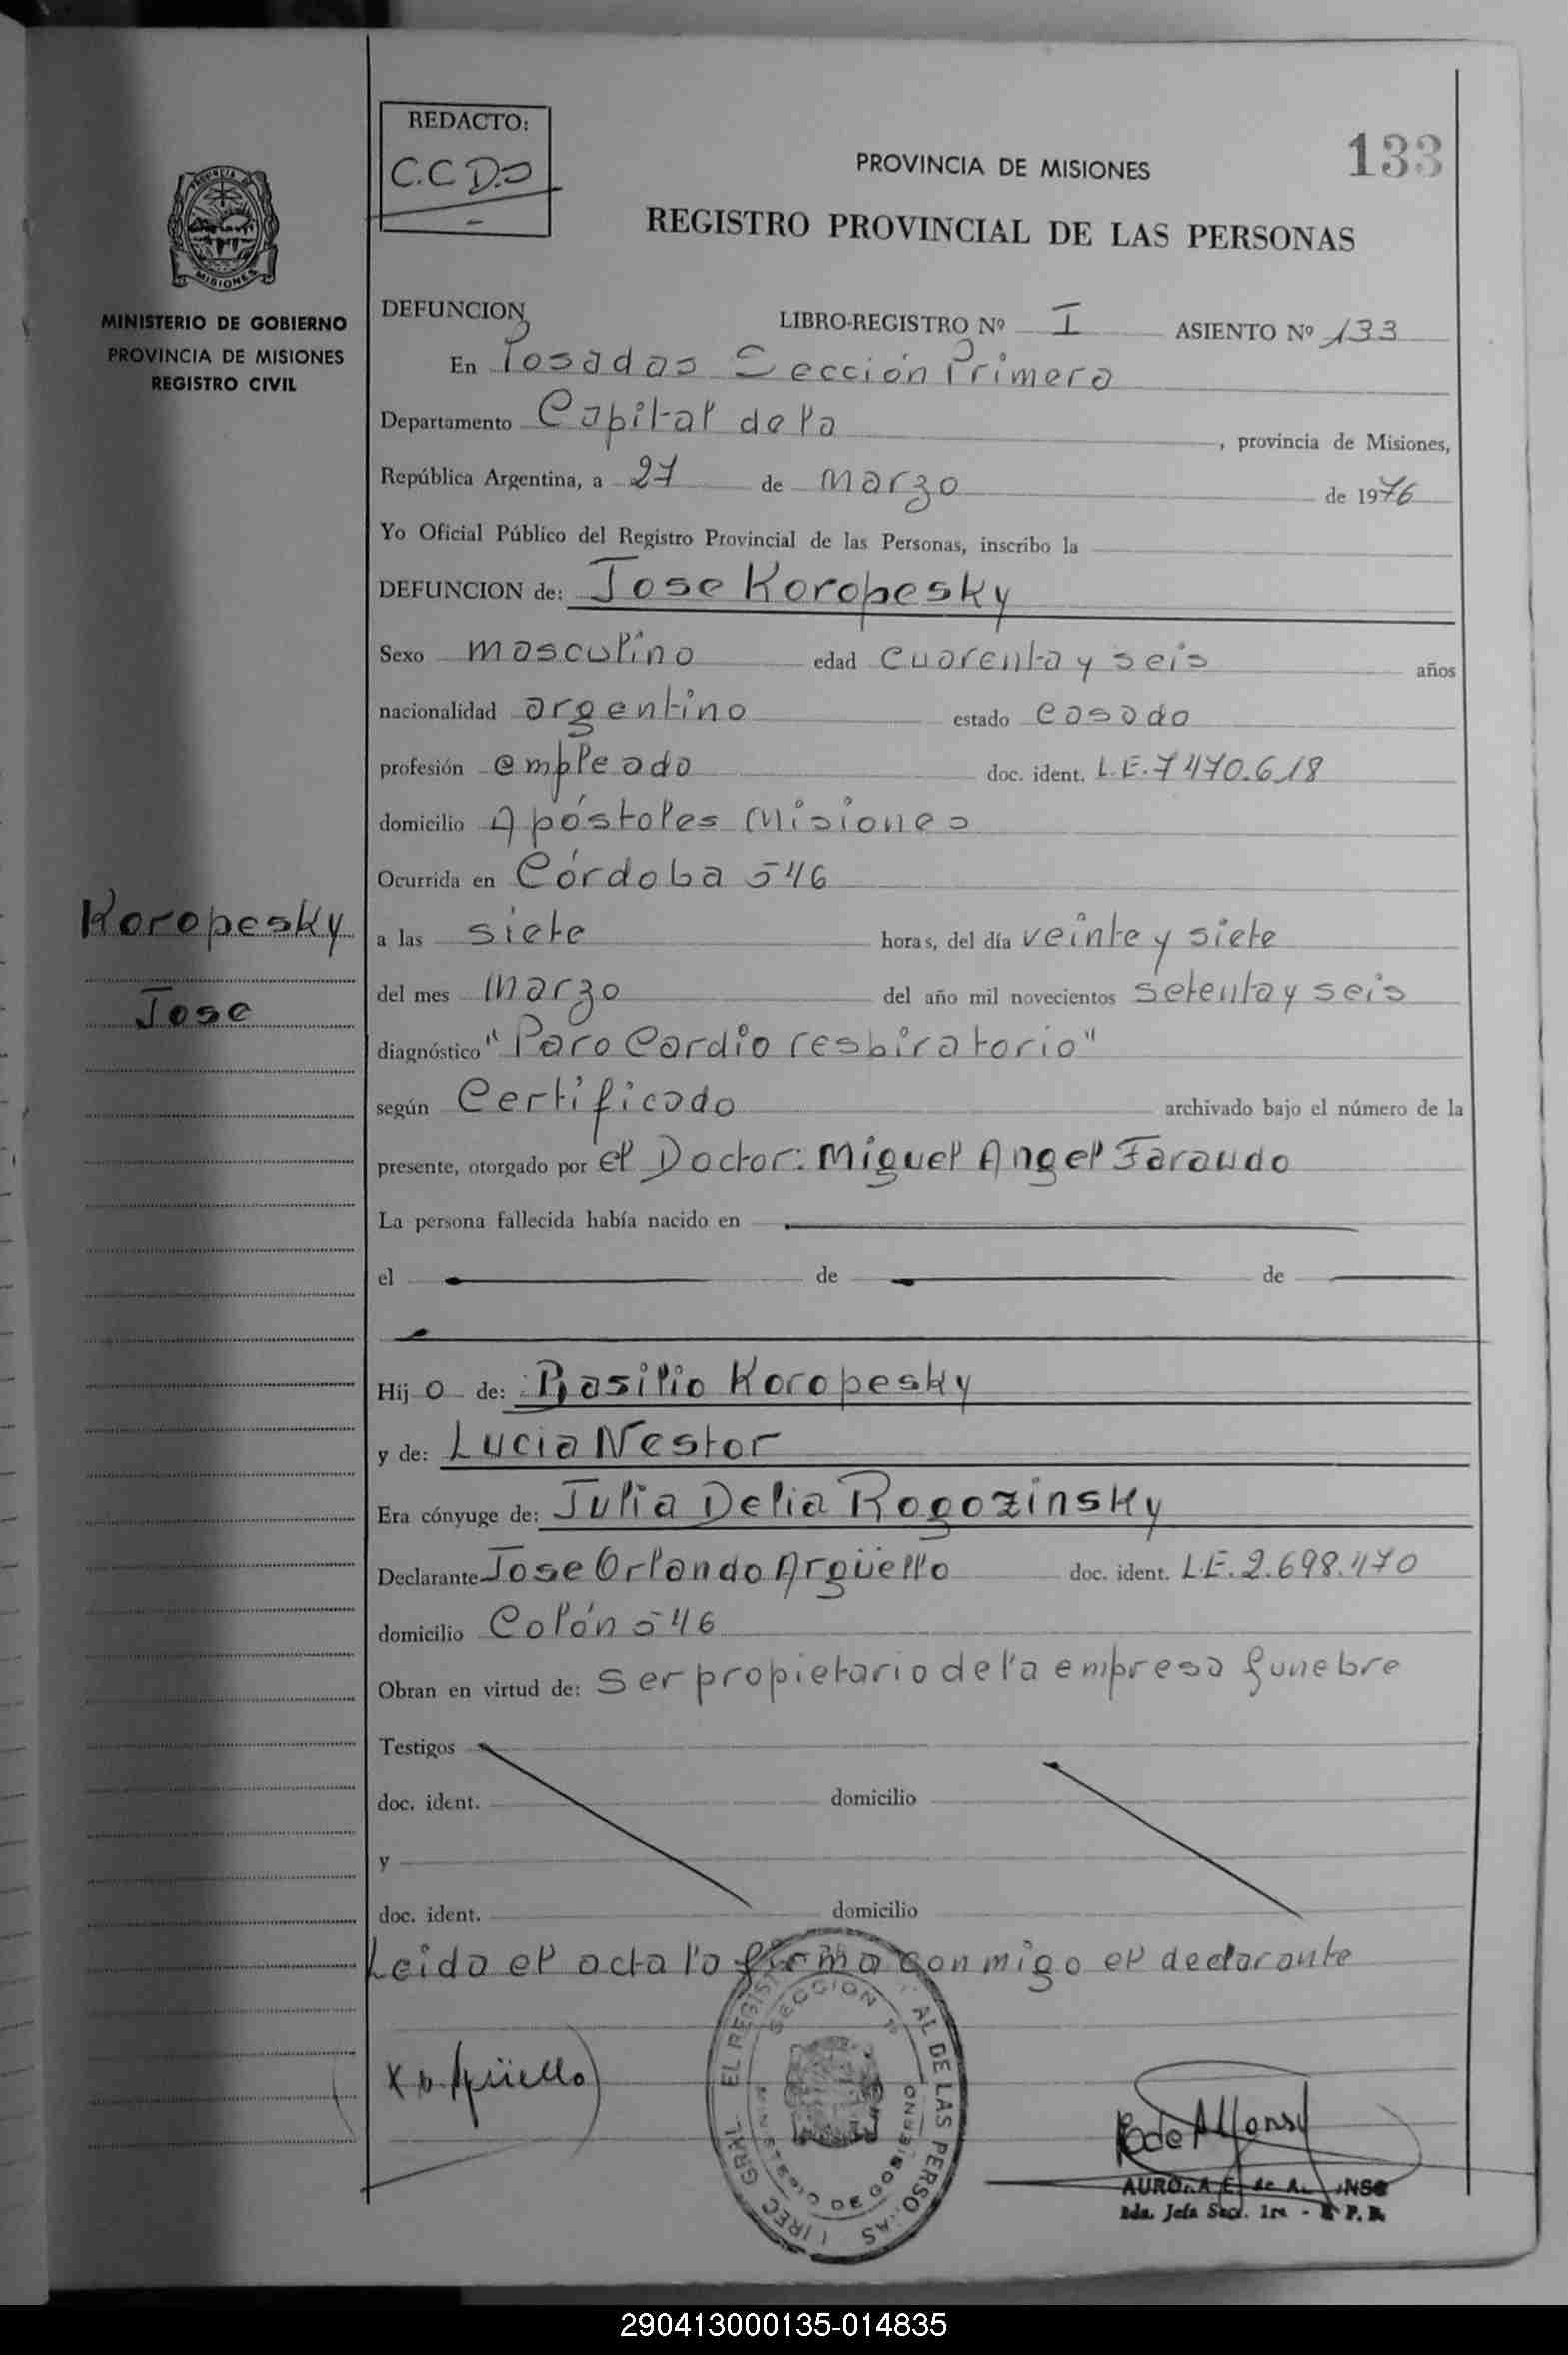 REDACTO:
C.C D.O
133
PROVINCIA DE MISIONES
REGISTRO PROVINCIAL DE LAS PERSONAS
MISIONES
MINISTERIO DE GOBIERNO
PROVINCIA DE MISIONES
REGISTRO CIVIL
DEFUNCION
LIBRO-REGISTRO Nº I ASIENTO Nº 133
En Posadas Sección Primera
Departamento Capital de la , provincia de Misiones,
República Argentina, a 27 de marzo de 1976
Yo Oficial Público del Registro Provincial de las Personas, inscribo la
DEFUNCION de: Jose Koropesky
Sexo masculino edad cuarenta y seis años
nacionalidad argentino estado casado
profesión empleado doc. ident. L.E. 7470.618
domicilio Apóstoles Misiones
Ocurrida en Córdoba 546
Koropesky
Jose
a las siete horas, del día veinte y siete
del mes marzo del año mil novecientos setenta y seis
diagnóstico "Paro Cardio respiratorio"
según Certificado archivado bajo el número de la
presente, otorgado por el Doctor: Miguel Angel Faraudo
La persona fallecida había nacido en
el de de
Hij o de: Basilio Koropesky
y de: Lucia Nestor
Era cónyuge de: Julia Delia Rogozinsky
Declarante Jose Orlando Argüello doc. ident. L.E. 2.698.470
domicilio Colón 546
Obran en virtud de: ser propietario de la empresa funebre
Testigos
doc. ident. domicilio
y
doc. ident. domicilio
Leida el acta la firma conmigo el declarante
Argüello
SECCION 1ª
MINISTERIO DE GOBIERNO
AL DE LAS PERSO AS
de Alfonso
Jefa Secc. 1ra - R P. P.
290413000135-014835